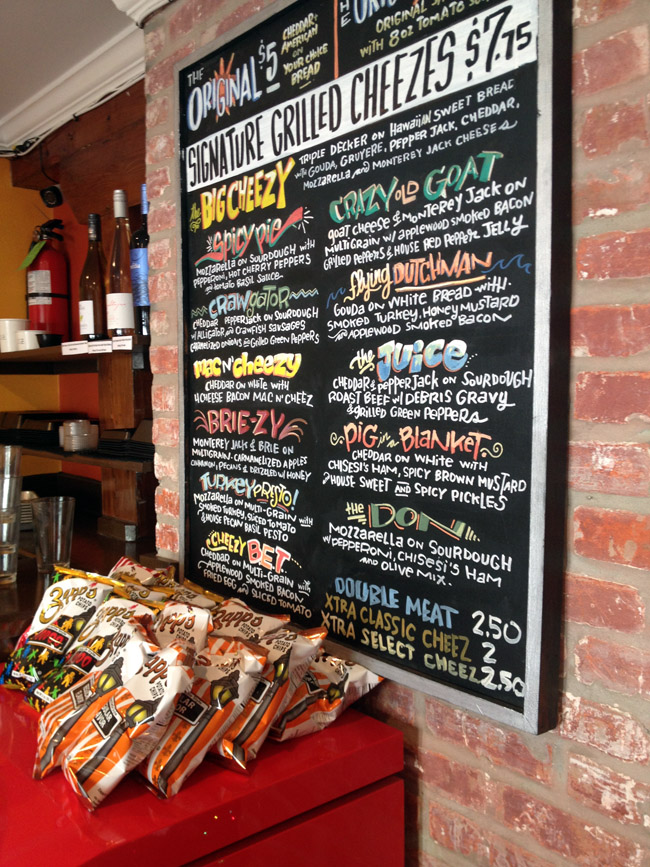 THE ORIGINAL $5
CHEDDAR &
AMERICAN
ON
YOUR CHOICE
BREAD
THE
ORIGINAL
WITH 8OZ TOMATO
SIGNATURE GRILLED CHEEZES $7.75
the BIG CHEEZY
TRIPLE DECKER ON HAWAIIAN SWEET BREAD
WITH GOUDA, GRUYERE, PEPPER JACK, CHEDDAR,
MOZZARELLA AND MONTEREY JACK CHEESES
SPICY PIE
MOZZARELLA ON SOURDOUGH WITH
PEPPERONI, HOT CHERRY PEPPERS
AND TOMATO BASIL SAUCE
CRAWGATOR
CHEDDAR PEPPERJACK ON SOURDOUGH
W/ ALLIGATOR AND CRAWFISH SAUSAGES
CARAMELIZED ONIONS AND GRILLED GREEN PEPPERS
MAC N' CHEEZY
CHEDDAR ON WHITE WITH
4CHEESE BACON MAC N' CHEEZ
BRIE-ZY
MONTEREY JACK & BRIE ON
MULTIGRAIN - CARAMELIZED APPLES
CINNAMON, PECANS & DRIZZLED W/ HONEY
TURKEY PRESTO!
MOZZARELLA ON MULTI-GRAIN WITH
SMOKED TURKEY, SLICED TOMATO
& HOUSE PECAN BASIL PESTO
CHEEZY BET
CHEDDAR ON MULTI-GRAIN WITH
APPLEWOOD SMOKED BACON
FRIED EGG AND SLICED TOMATO
CRAZY OLD GOAT
GOAT CHEESE & MONTEREY JACK ON
MULTIGRAIN W/ APPLEWOOD SMOKED BACON
GRILLED PEPPERS & HOUSE RED PEPPER JELLY
flying DUTCHMAN
GOUDA ON WHITE BREAD WITH
SMOKED TURKEY, HONEY MUSTARD
AND APPLEWOOD SMOKED BACON
the JUICE
CHEDDAR & PEPPER JACK ON SOURDOUGH
ROAST BEEF W/ DEBRIS GRAVY
& GRILLED GREEN PEPPERS
PIG in a BLANKET
CHEDDAR ON WHITE WITH
CHISESI'S HAM, SPICY BROWN MUSTARD
& HOUSE SWEET AND SPICY PICKLES
the DON
MOZZARELLA ON SOURDOUGH
W/ PEPPERONI, CHISESI'S HAM
AND OLIVE MIX.
DOUBLE MEAT 2.50
XTRA CLASSIC CHEEZ 2
XTRA SELECT CHEEZ 2.50
Zapp's
Zapp's
Zapp's
Zapp's
VOODOO